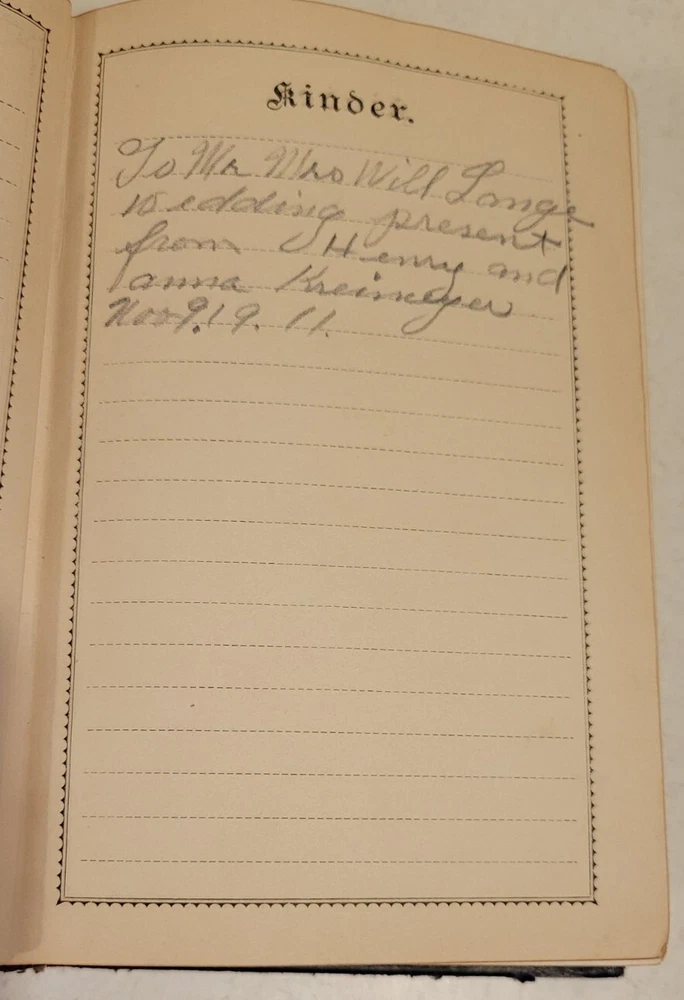 Kinder.
To Mr Mrs Will Lange
Wedding present
from Henry and
anna Kreimeyer
Nov 9. 19. 11.